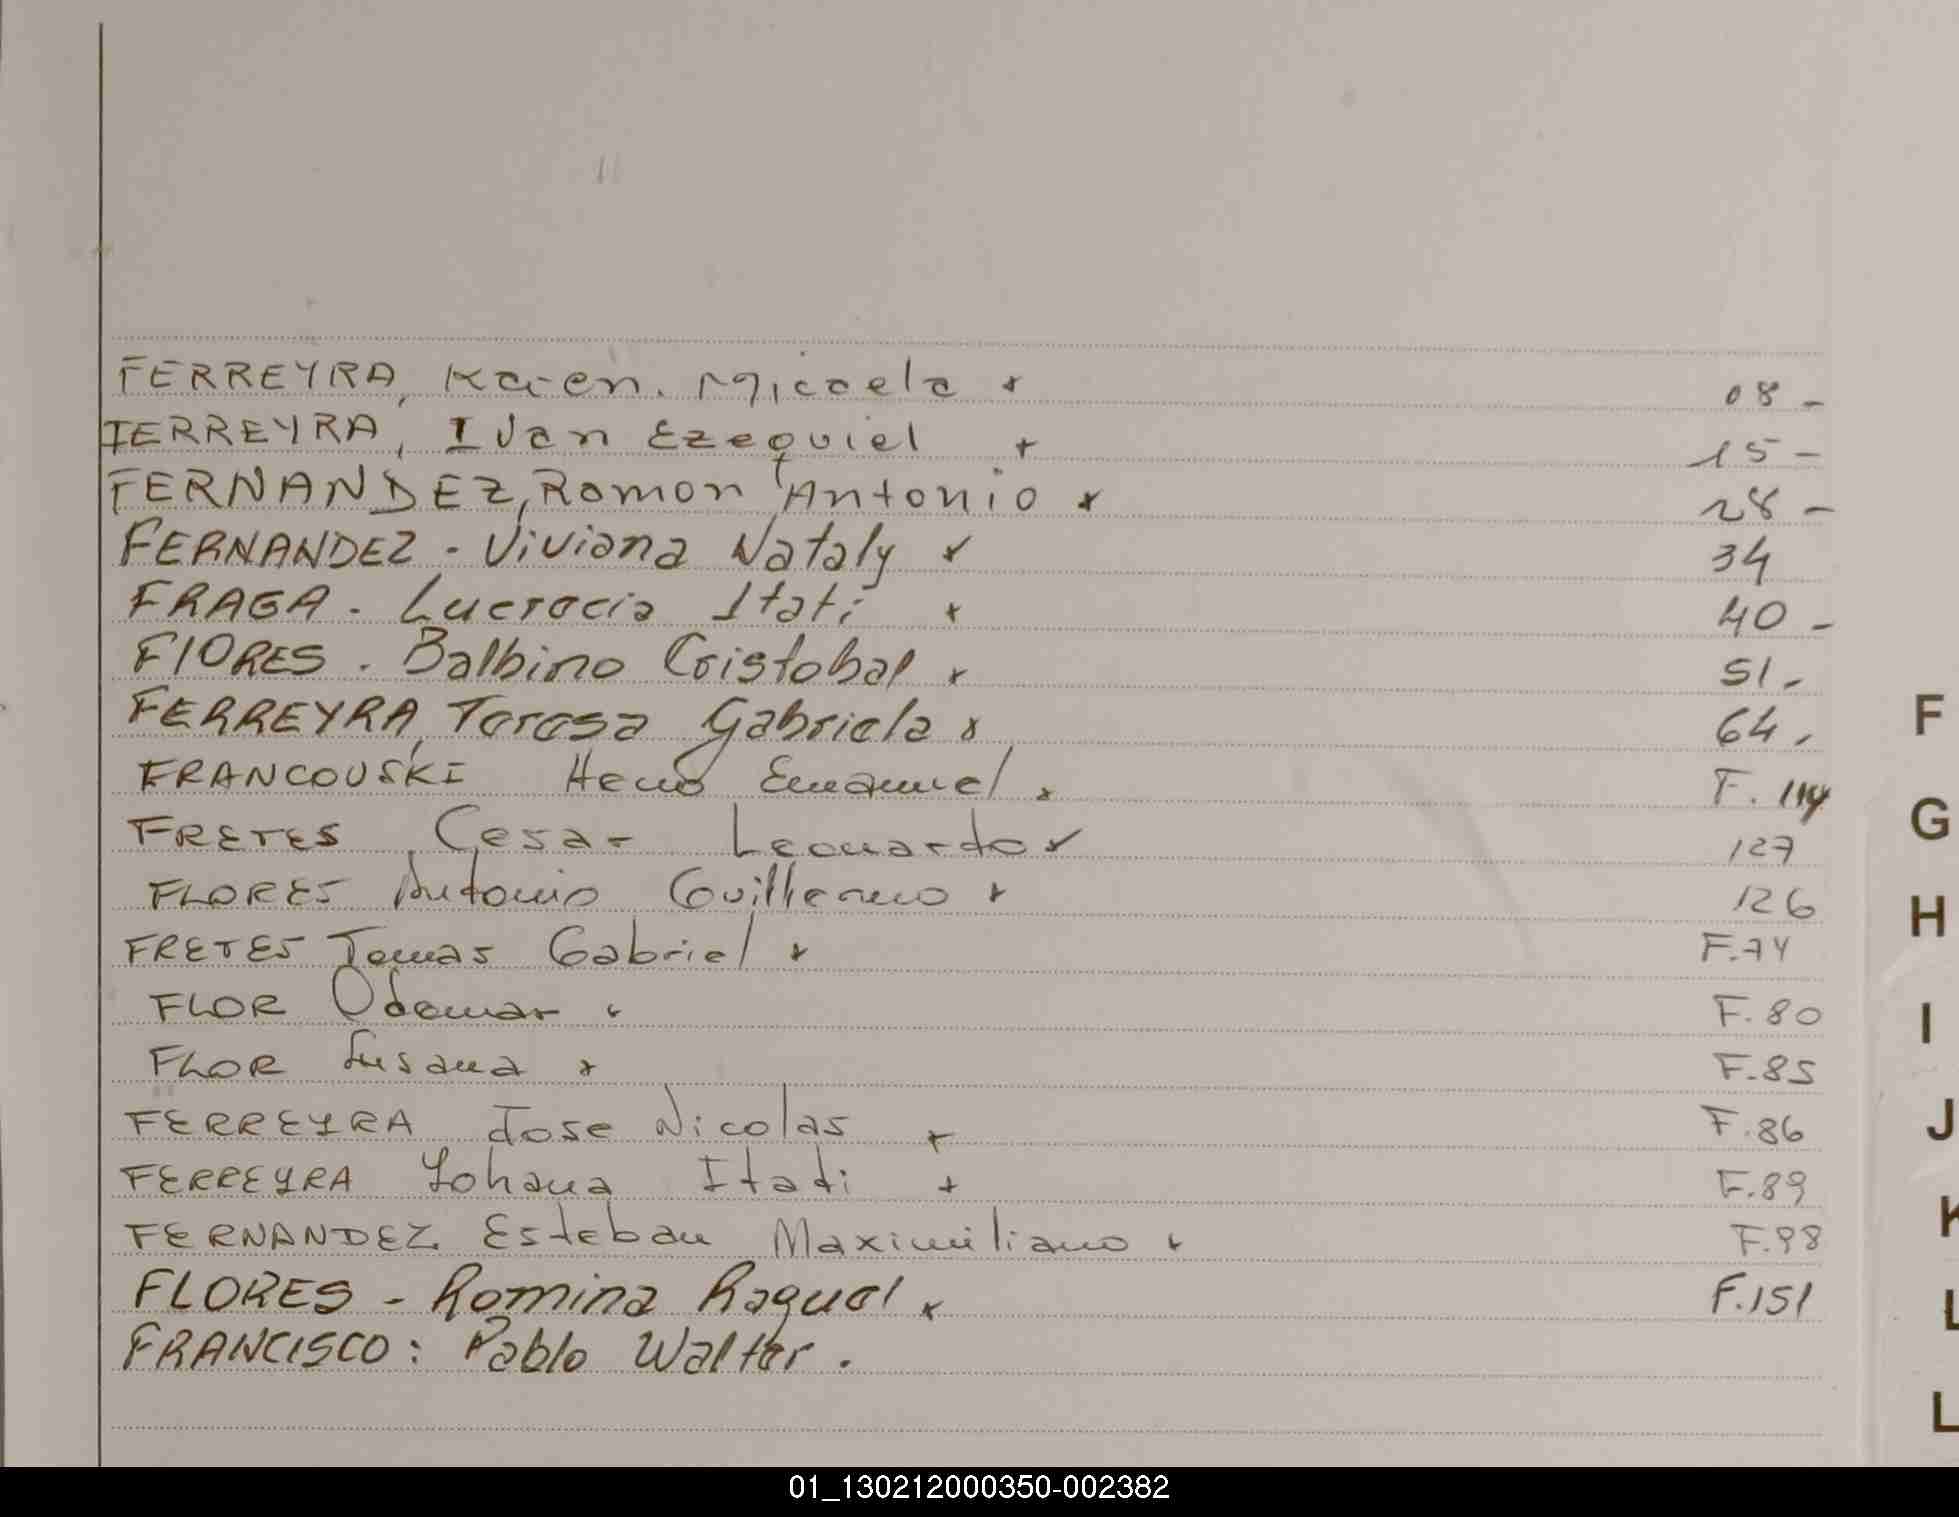 FERREYRA, Karen. Micaela x 08 -
FERREYRA, Ivan Ezequiel + 15 -
FERNANDEZ, Ramon Antonio x 28 -
FERNANDEZ - Viviana Nataly x 34
FRAGA - Lucrecia Itati x 40 -
FlORES - Balbino Cristobal x 51 -
FERREYRA, Teresa Gabriela x 64 -
F
FRANCOUSKI Emanuel x F. 114
FRETES Cesar Leonardo x 127
G
FLORES Antonio Guillermo x 126
H
FRETES Tomas Gabriel x F.74
FLOR Odomar x F.80
I
FLOR Susana x F.85
FERREYRA Jose Nicolas x F.86
J
FERREYRA Yohana Itati + F.89
FERNANDEZ Esteban Maximiliano x F.98
K
FLORES - Romina Raquel x F.151
L
FRANCISCO: Pablo Walter.
L
01_130212000350-002382